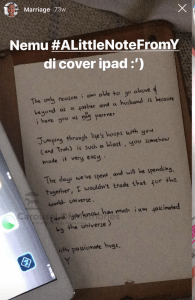 Marriage 73w
Nemu #ALittleNoteFromY
di cover ipad :')
The only reason i am able to go above &
beyond as a father and a husband is because
i have you as my partner
Jumping through life's hoops with you
(and Trah) is such a blast, you somehow
made it very easy.
The days we've spent and will be spending,
together, I wouldn't trade that for the
world. universe.
(and you know how much i am fascinated
by the universe)
passionate hugs,
Y